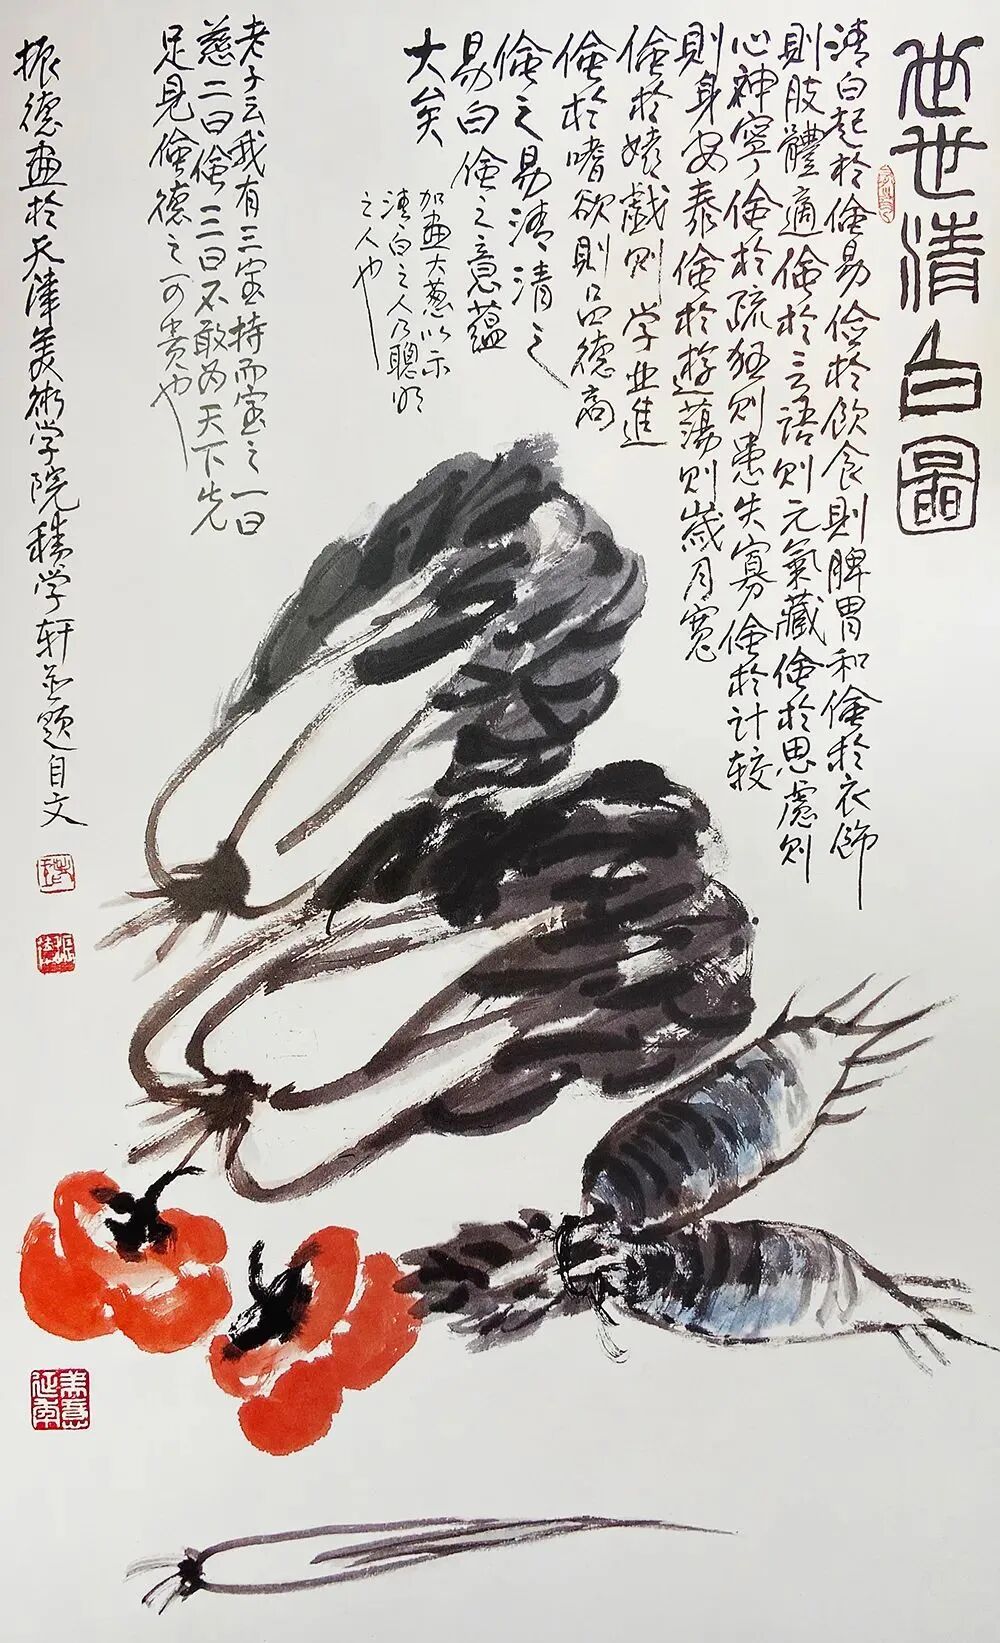 世世清白圖
清白起於儉易俭於飲食則脾胃和儉於衣飾
則肢體適儉於言語則元氣藏儉於思慮则
心神寧儉於疏狂则患失寡儉於计较
則身安泰儉於遊蕩则歲月寬
儉於嬉戲则学业進
儉於嗜欲則品德高
儉之易清清之
易白儉之意蘊
大矣
加畫大葱以示
清白之人乃聰明
之人也
老子云我有三宝持而宝之一曰
慈二曰儉三曰不敢为天下先
足見儉德之可贵也
振德畫於天津美術学院積学轩並题自文
美意延年